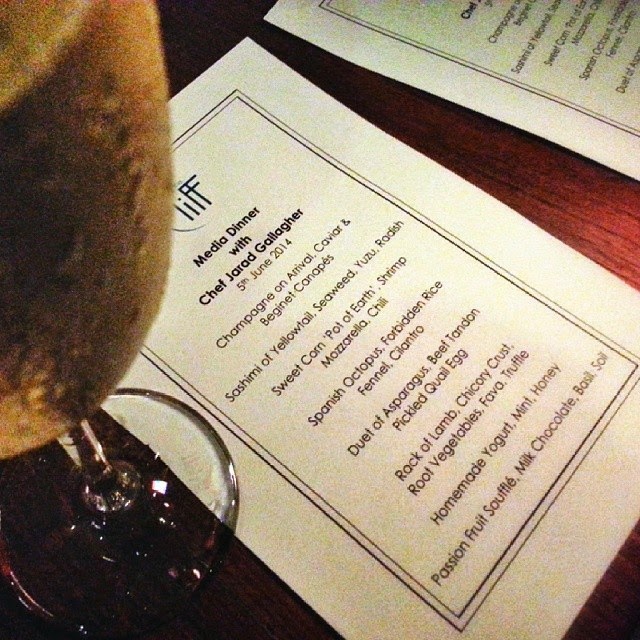 liFF
Media Dinner
with
Chef Jarad Gallagher
5th June 2014
Champagne on Arrival, Caviar &
Beginet Canapés
Sashimi of Yellowtail, Seaweed, Yuzu, Radish
Sweet Corn 'Pot of Earth', Shrimp
Mozzarella, Chili
Spanish Octopus, Forbidden Rice
Fennel, Cilantro
Duet of Asparagus, Beef Tendon
Pickled Quail Egg
Rock of Lamb, Chicory Crust,
Root Vegetables, Fava, Truffle
Homemade Yogurt, Mint, Honey
Passion Fruit Soufflé, Milk Chocolate, Basil, Soil
Chef
Champagne on
Sashimi of Yellowtail,
Sweet Corn 'Pot of
Mozzarella,
Spanish Octopus,
Fennel,
Duet of